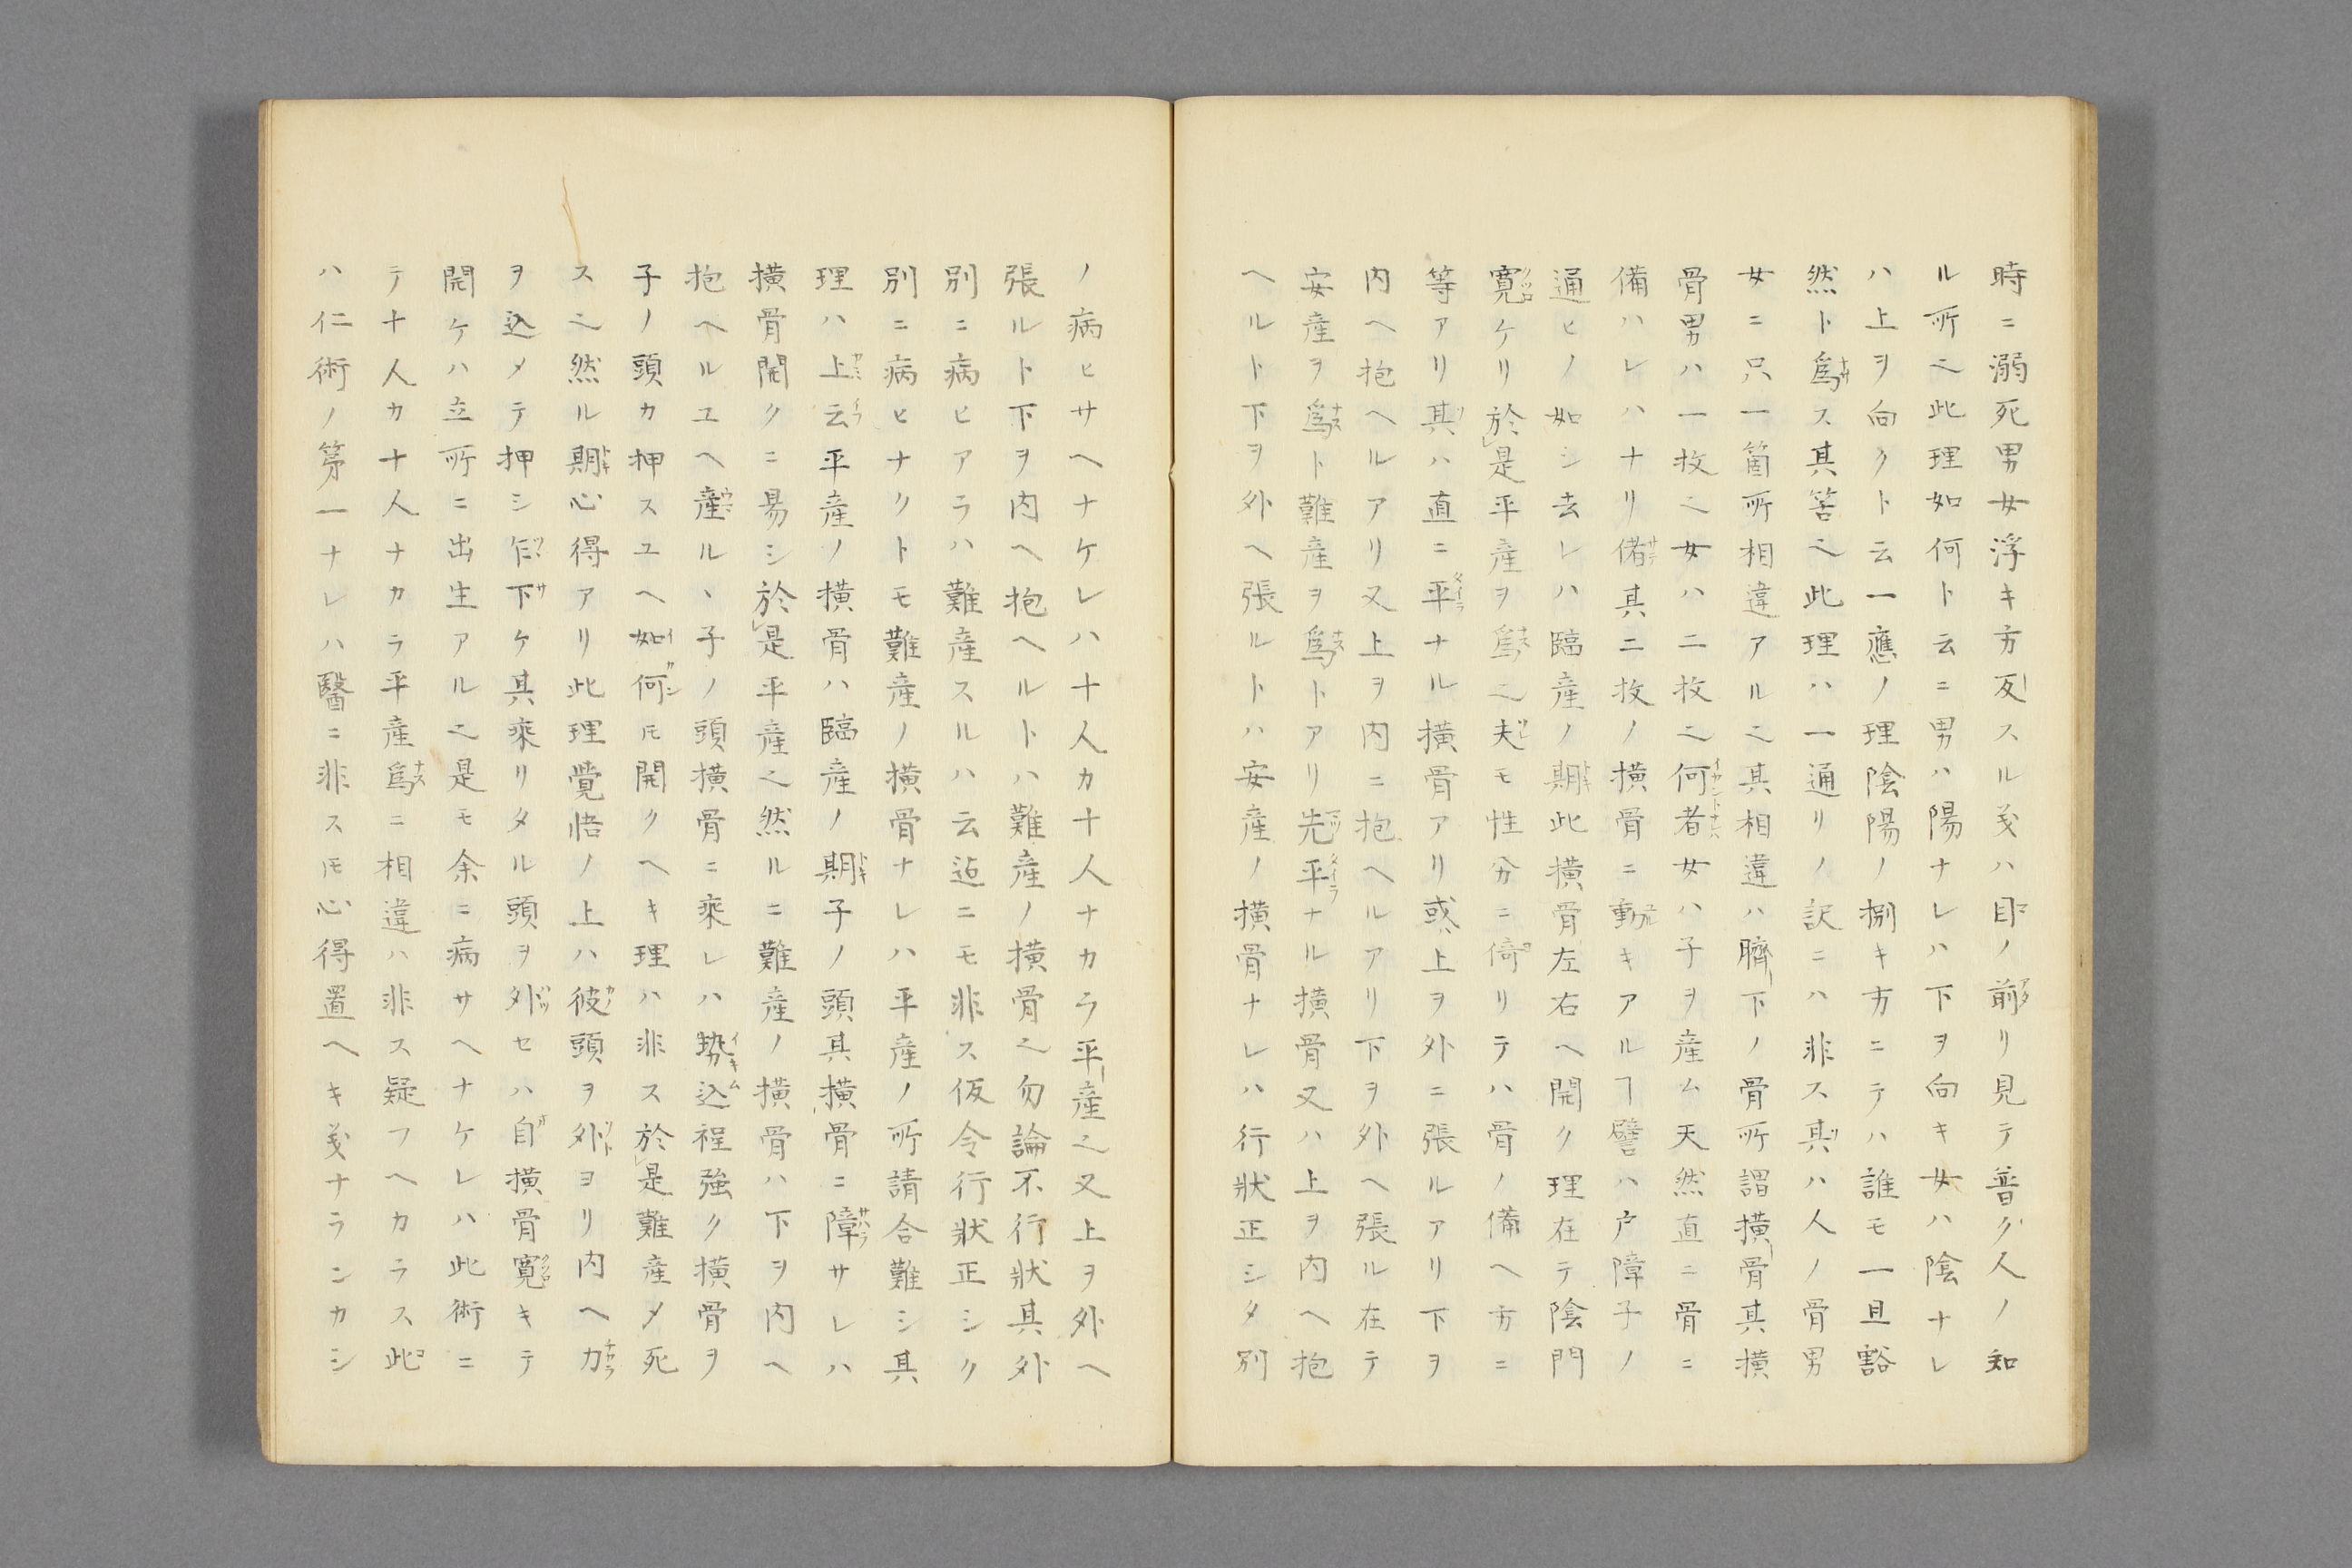 時ニ溺死男女浮キ方反スル義ハ目ノ前リ見テ普ク人ノ知
ル所也此理如何ト云ニ男ハ陽ナレハ下ヲ向キ女ハ陰ナレ
ハ上ヲ向クト云一應ノ理陰陽ノ捌キ方ニテハ誰モ一旦豁
然ト爲ス其筈也此理ハ一通リノ訳ニハ非ス其ハ人ノ骨男
女ニ只一箇所相違アル也其相違ハ臍下ノ骨所謂横骨其横
骨男ハ一枚也女ハ二枚也何者女ハ子ヲ産ム天然直ニ骨ニ
備ハレハナリ偖其二枚ノ横骨ニ動キアルヿ譬ハ戸障子ノ
通ヒノ如シ去レハ臨産ノ期此横骨左右ヘ開ク理在テ陰門
寛ケリ於是平産ヲ爲也夫モ性分ニ倚リテハ骨ノ備ヘ方ニ
等アリ其ハ直ニ平ナル横骨アリ或上ヲ外ニ張ルアリ下ヲ
内ヘ抱ヘルアリ又上ヲ内ニ抱ヘルアリ下ヲ外ヘ張ル在テ
安産ヲ爲ト難産ヲ爲トアリ先平ナル横骨又ハ上ヲ内ヘ抱
ヘルト下ヲ外ヘ張ルトハ安産ノ横骨ナレハ行狀正シタ別
ノ病ヒサヘナケレハ十人カ十人ナカラ平産也又上ヲ外ヘ
張ルト下ヲ内ヘ抱ヘルトハ難産ノ横骨也勿論不行狀其外
別ニ病ヒアラハ難産スルハ云迠ニモ非ス仮令行狀正シク
別ニ病ヒナクトモ難産ノ横骨ナレハ平産ノ所請合難シ其
理ハ上云平産ノ横骨ハ臨産ノ期子ノ頭其横骨ニ障サレハ
横骨開クニ易シ於是平産也然ルニ難産ノ横骨ハ下ヲ内ヘ
抱ヘルユヘ産ルヽ子ノ頭横骨ニ乘レハ勢込程強ク横骨ヲ
子ノ頭カ押スユヘ如何𪜈開クヘキ理ハ非ス於是難産メ死
ス也然ル期心得アリ此理覺悟ノ上ハ彼頭ヲ外ヨリ内ヘ力
ヲ込メテ押シ乍下ケ其乘リタル頭ヲ外セハ自横骨寛キテ
開ケハ立所ニ出生アル也是モ余ニ病サヘナケレハ此術ニ
テ十人カ十人ナカラ平産爲ニ相違ハ非ス疑フヘカラス此
ハ仁術ノ第一ナレハ醫ニ非ス𪜈心得置ヘキ義ナランカシ